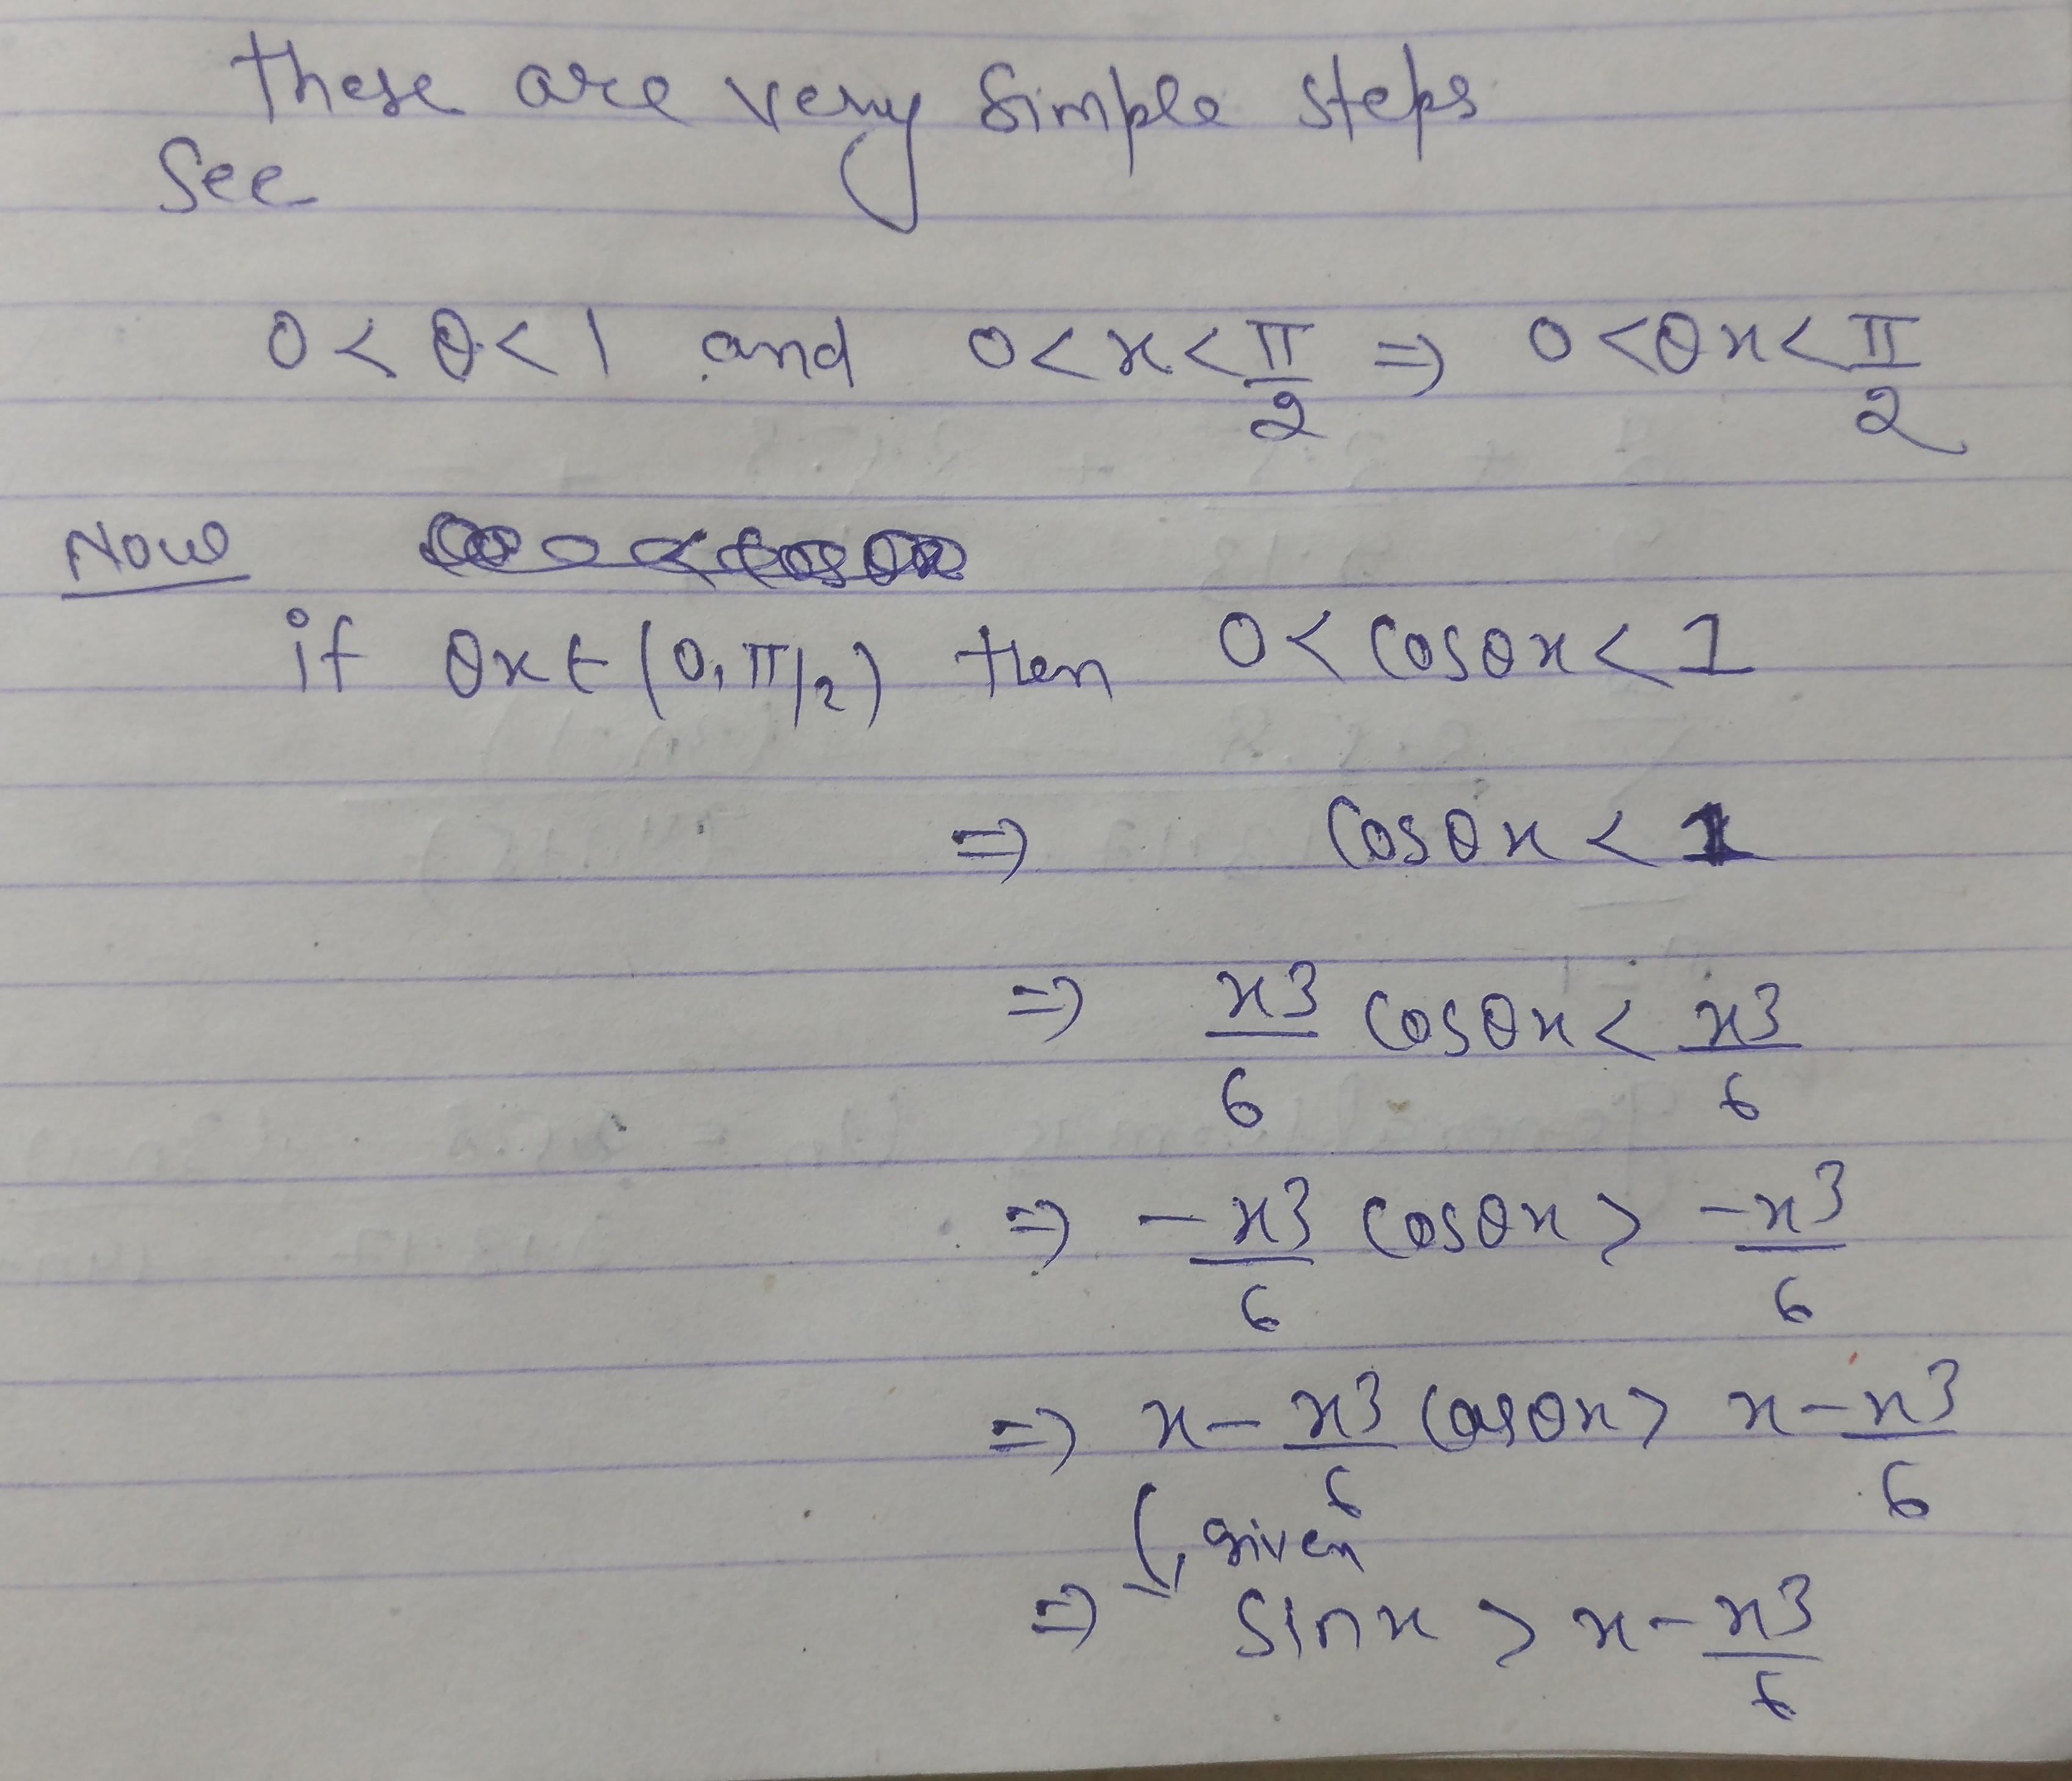 these are very simple steps
See
0 < θ < 1 and 0 < x < π/2 ⇒ 0 < θx < π/2
Now
if θx ∈ (0, π/2) then 0 < cosθx < 1
⇒ cosθx < 1
⇒ x³/6 cosθx < x³/6
⇒ -x³/6 cosθx > -x³/6
⇒ x - x³/6 cosθx > x - x³/6
given
⇒ sinx > x - x³/6